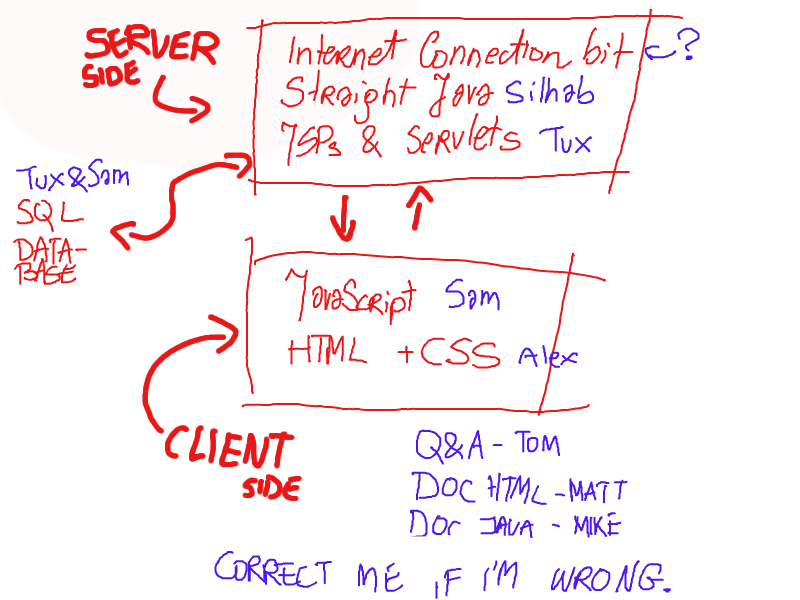 SERVER
SIDE
Internet Connection bit ?
Straight Java Silhab
JSPs & Servlets Tux
Tux & Sam
SQL
DATA-
BASE
JavaScript Sam
HTML + CSS Alex
CLIENT
SIDE
Q&A - TOM
DOC HTML - MATT
DOC JAVA - MIKE
CORRECT ME IF I'M WRONG.